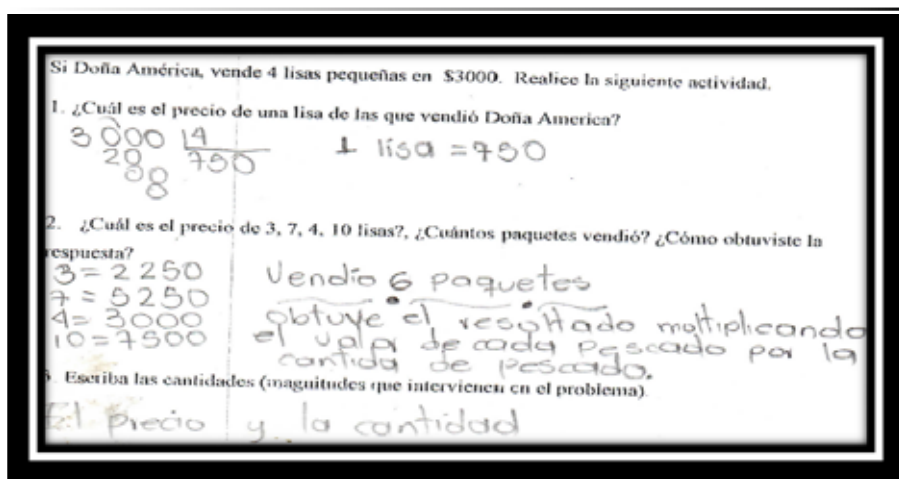 Si Doña América, vende 4 lisas pequeñas en $3000. Realice la siguiente actividad.
1. ¿Cuál es el precio de una lisa de las que vendió Doña America?
3000 14
20 750 1 lisa = 750
00
0
2. ¿Cuál es el precio de 3, 7, 4, 10 lisas?, ¿Cuántos paquetes vendió? ¿Cómo obtuviste la
respuesta?
3 = 2250 Vendío 6 paquetes
7 = 5250
4 = 3000 obtuve el resultado moltiplicando
10 = 7500 el valor de cada pescado por la
cantida de pescado.
. Escriba las cantidades (magnitudes que intervienen en el problema).
El precio y la cantidad